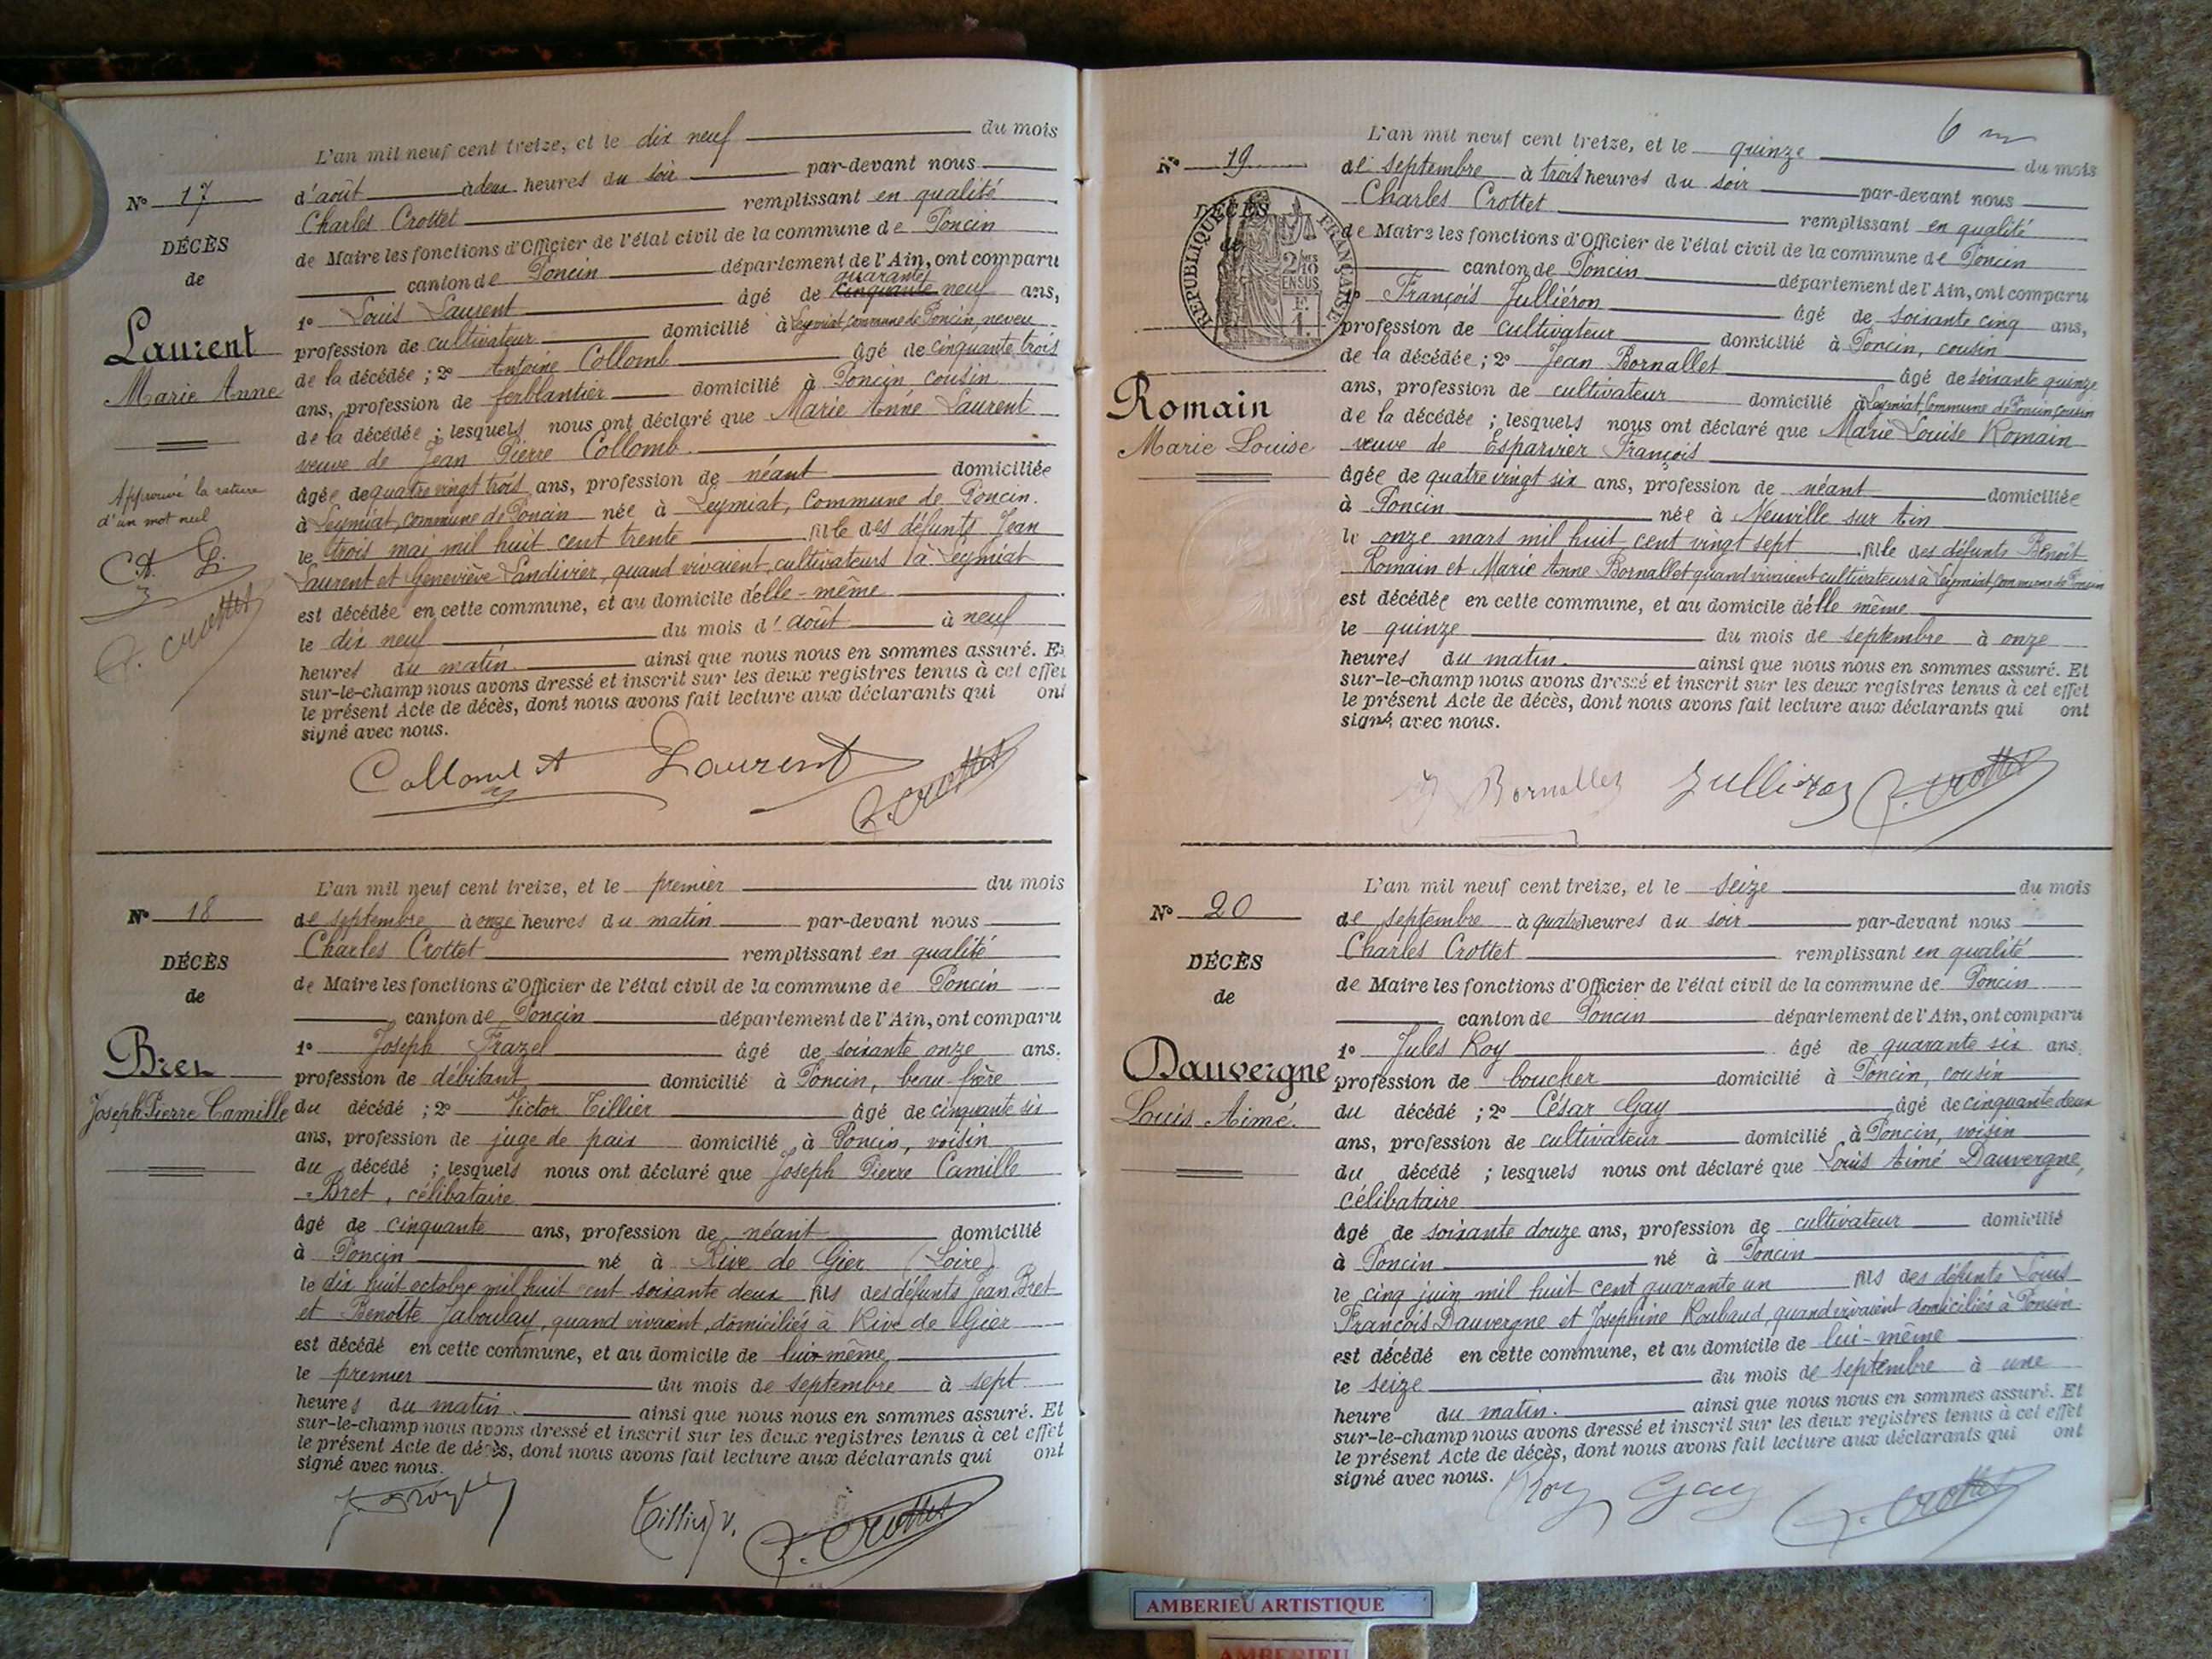 L'an mil neuf cent treize, et le dix neuf du mois
N° 17
d'août à deux heures du soir par-devant nous
DÉCÈS
Charles Crottet remplissant en qualité
de
de Maire les fonctions d'Officier de l'état civil de la commune de Poncin
canton de Poncin département de l'Ain, ont comparu
quarante
1° Louis Laurent âgé de cinquante neuf ans,
Laurent
profession de cultivateur domicilié à Leymiat, commune de Poncin, neveu
Marie Anne
de la décédée ; 2° Antoine Collomb âgé de cinquante trois
ans, profession de ferblantier domicilié à Poncin cousin
de la décédée ; lesquels nous ont déclaré que Marie Anne Laurent
veuve de Jean Pierre Collomb
Approuvé la rature
d'un mot nul
C.A.
C. Crottet
âgée de quatre vingt trois ans, profession de néant domiciliée
à Leymiat, commune de Poncin née à Leymiat, commune de Poncin.
le trois mai mil huit cent trente fille des défunts Jean
Laurent et Geneviève Landivier, quand vivaient, cultivateurs à Leymiat
est décédée en cette commune, et au domicile d'elle-même
le dix neuf du mois d'août à neuf
heures du matin. ainsi que nous nous en sommes assuré. Et
sur-le-champ nous avons dressé et inscrit sur les deux registres tenus à cet effet
le présent Acte de décès, dont nous avons fait lecture aux déclarants qui ont
signé avec nous.
Collomb A Laurent C. Crottet
L'an mil neuf cent treize, et le premier du mois
N° 18
de septembre à onze heures du matin par-devant nous
DÉCÈS
Charles Crottet remplissant en qualité
de
de Maire les fonctions d'Officier de l'état civil de la commune de Poncin
canton de Poncin département de l'Ain, ont comparu
Bret
1° Joseph Frazel âgé de soixante onze ans.
profession de débitant domicilié à Poncin, beau-frère
Joseph Pierre Camille
du décédé ; 2° Victor Tillier âgé de cinquante six
ans, profession de juge de paix domicilié à Poncin, voisin
du décédé ; lesquels nous ont déclaré que Joseph Pierre Camille
Bret, célibataire
âgé de cinquante ans, profession de néant domicilié
à Poncin né à Rive de Gier (Loire)
le dix huit octobre mil huit cent soixante deux fils des défunts Jean Bret
et Benoîte Jaboulay, quand vivaient, domiciliés à Rive de Gier
est décédé en cette commune, et au domicile de lui-même
le premier du mois de septembre à sept
heures du matin. ainsi que nous nous en sommes assuré. Et
sur-le-champ nous avons dressé et inscrit sur les deux registres tenus à cet effet
le présent Acte de décès, dont nous avons fait lecture aux déclarants qui ont
signé avec nous.
Tillier V. C. Crottet
6
L'an mil neuf cent treize, et le quinze du mois
N° 19
de septembre à trois heures du soir par-devant nous
DÉCÈS
de
RÉPUBLIQUE FRANÇAISE
2/10 EN SUS
Charles Crottet remplissant en qualité
de Maire les fonctions d'Officier de l'état civil de la commune de Poncin
canton de Poncin département de l'Ain, ont comparu
1° François Julliéron âgé de soixante cinq ans,
profession de cultivateur domicilié à Poncin, cousin
Romain
Marie Louise
de la décédée ; 2° Jean Bornallet âgé de soixante quinze
ans, profession de cultivateur domicilié à Leymiat, Commune de Poncin, cousin
de la décédée ; lesquels nous ont déclaré que Marie Louise Romain
veuve de Esparvier François
âgée de quatre vingt six ans, profession de néant domiciliée
à Poncin née à Neuville sur Ain
le onze mars mil huit cent vingt sept fille des défunts Benoît
Romain et Marie Anne Bornallet quand vivaient cultivateurs à Leymiat, commune de Poncin
est décédée en cette commune, et au domicile d'elle même
le quinze du mois de septembre à onze
heures du matin. ainsi que nous nous en sommes assuré. Et
sur-le-champ nous avons dressé et inscrit sur les deux registres tenus à cet effet
le présent Acte de décès, dont nous avons fait lecture aux déclarants qui ont
signé avec nous.
J Bornallet Julliéron C. Crottet
L'an mil neuf cent treize, et le seize du mois
N° 20
de septembre à quatre heures du soir par-devant nous
DÉCÈS
Charles Crottet remplissant en qualité
de
de Maire les fonctions d'Officier de l'état civil de la commune de Poncin
canton de Poncin département de l'Ain, ont comparu
1° Jules Roy âgé de quarante six ans,
Dauvergne
profession de boucher domicilié à Poncin, cousin
Louis Aimé.
du décédé ; 2° César Gay âgé de cinquante deux
ans, profession de cultivateur domicilié à Poncin, voisin
du décédé ; lesquels nous ont déclaré que Louis Aimé Dauvergne,
célibataire
âgé de soixante douze ans, profession de cultivateur domicilié
à Poncin né à Poncin
le cinq juin mil huit cent quarante un fils des défunts Louis
François Dauvergne et Joséphine Roubaud, quand vivaient domiciliés à Poncin
est décédé en cette commune, et au domicile de lui-même
le seize du mois de septembre à une
heure du matin. ainsi que nous nous en sommes assuré. Et
sur-le-champ nous avons dressé et inscrit sur les deux registres tenus à cet effet
le présent Acte de décès, dont nous avons fait lecture aux déclarants qui ont
signé avec nous.
Roy Gay C. Crottet
AMBERIEU ARTISTIQUE
AMBERIEU